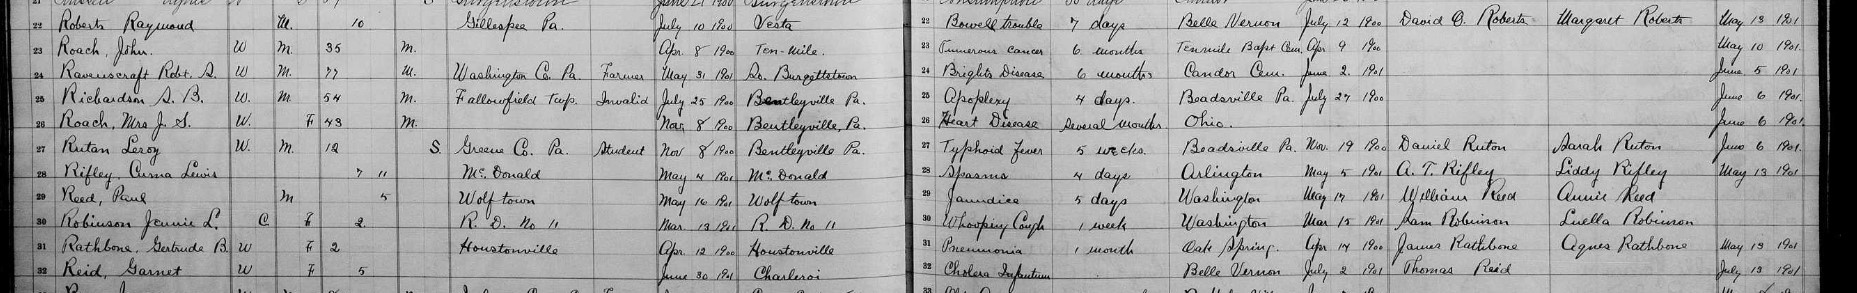 22 Roberts Raymond M. 10 Gillespie Pa. July 10 1900 Vesta 22 Bowell trouble 7 days Belle Vernon July 12 1900 David O. Roberts Margaret Roberts May 13 1901
23 Roach, John. W M. 35 M. Apr. 8 1900 Ten-Mile. 23 Tumerous cancer 6 months Tenmile Bapt Cem. Apr 9 1900 May 10 1901.
24 Ravenscraft Robt. S. W M. 77 M. Washington Co. Pa. Farmer May 31 1901 So. Burgettstown 24 Brights Disease 6 months Candor Cem. June 2. 1901 June 5 1901
25 Richardson S. B. W. M 54 M. Fallowfield Twp. Invalid July 25 1900 Bentleyville Pa. 25 Apoplexy 4 days. Beadsville Pa. July 27 1900 June 6 1901.
26 Roach, Mrs J. S. W. F 43 M. Nov. 8 1900 Bentleyville, Pa. 26 Heart Disease several months. Ohio. June 6 1901.
27 Rutan Leroy W. M. 12 S. Greene Co. Pa. Student Nov 8 1900 Bentleyville Pa. 27 Typhoid Fever 5 weeks. Beadsville Pa. Nov. 19 1900 Daniel Ruton Sarah Ruton June 6 1901.
28 Rifley, Lewis 7 11 Mc. Donald May 4 1901 Mc. Donald 28 Spasms 4 days Arlington May 5 1901 A. T. Rifley Liddy Rifley May 13 1901
29 Reed, Paul M 5 Wolftown May 16 1901 Wolftown 29 Jaundice 5 days Washington May 17 1901 William Reed Annie Reed
30 Robinson Jennie L. C F 2. R. D. No 11 Mar. 13 1901 R. D. No 11 30 Whooping Cough 1 week Washington Mar 15 1901 Sam Robinson Luella Robinson
31 Rathbone, Gertrude B. W F 2 Houstonville Apr. 12 1900 Houstonville 31 Pneumonia 1 month Oak Spring. Apr 14 1900 James Rathbone Agnes Rathbone May 13 1901
32 Reid, Garnet W F 5 June 30 1901 Charleroi 32 Cholera Infantum Belle Vernon July 2 1901 Thomas Reid July 13 1901